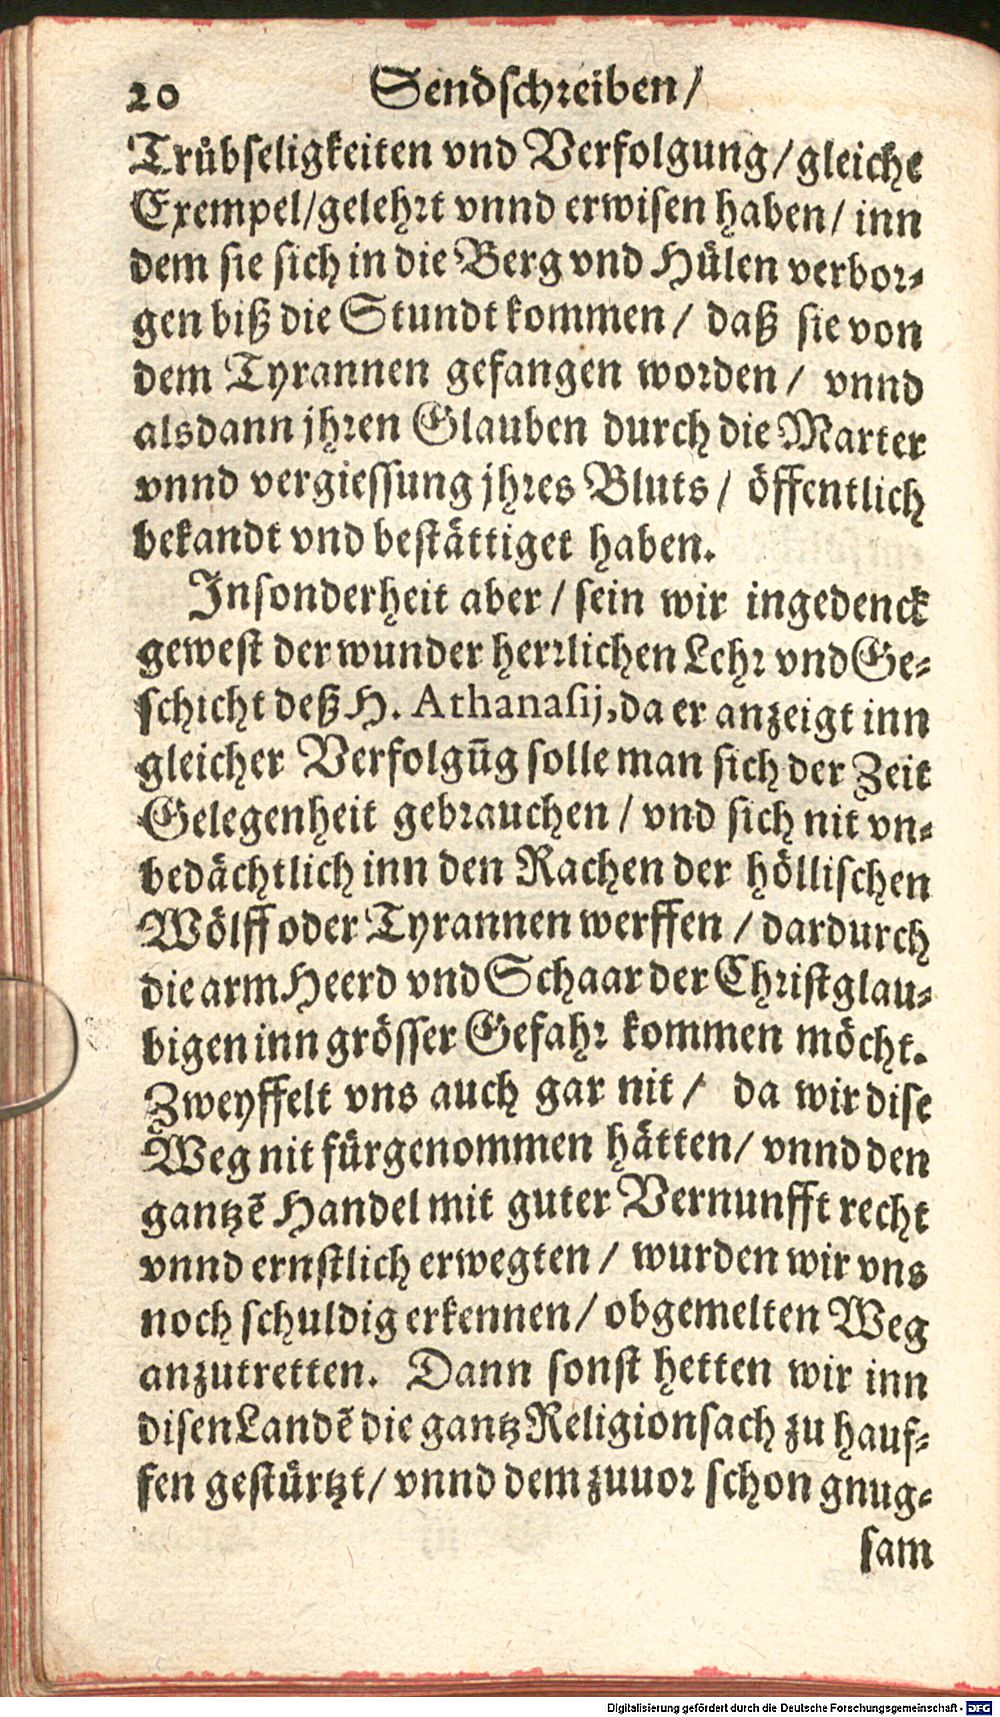 20 Sendschreiben/
Trůbseligkeiten vnd Verfolgung/gleiche
Exempel/gelehrt vnnd erwisen haben/ inn
dem sie sich in die Berg vnd Hülen verbor⸗
gen biß die Stundt kommen/ daß sie von
dem Tyrannen gefangen worden/ vnnd
alsdann jhren Glauben durch die Marter
vnnd vergiessung jhres Bluts/ öffentlich
bekandt vnd bestättiget haben.
Insonderheit aber/ sein wir ingedenck
gewest der wunder herrlichen Lehr vnd Ge⸗
schicht deß H. Athanasij, da er anzeigt inn
gleicher Verfolgūg solle man sich der Zeit
Gelegenheit gebrauchen/ vnd sich nit vn⸗
bedächtlich inn den Rachen der höllischen
Wölff oder Tyrannen werffen/ dardurch
die arm Heerd vnd Schaar der Christglau⸗
bigen inn grösser Gefahr kommen möcht.
Zweyffelt vns auch gar nit/ da wir dise
Weg nit fürgenommen hätten/ vnnd den
gantzē Handel mit guter Vernunfft recht
vnnd ernstlich erwegten/ wurden wir vns
noch schuldig erkennen/ obgemelten Weg
anzutretten. Dann sonst hetten wir inn
disen Landē die gantz Religionsach zu hauf⸗
fen gestürtzt/ vnnd dem zuuor schon gnug⸗
sam
Digitalisierung gefördert durch die Deutsche Forschungsgemeinschaft - DFG